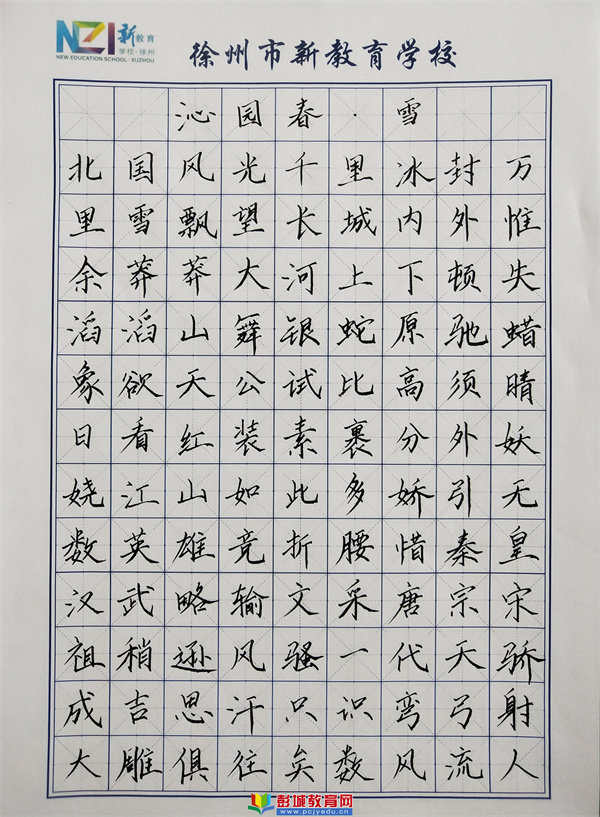 NEI 新教育
学校·徐州
NEW EDUCATION SCHOOL · XUZHOU
徐州市新教育学校
沁园春·雪
北国风光千里冰封万
里雪飘望长城内外惟
余莽莽大河上下顿失
滔滔山舞银蛇原驰蜡
象欲天公试比高须晴
日看红装素裹分外妖
娆江山如此多娇引无
数英雄竞折腰惜秦皇
汉武略输文采唐宗宋
祖稍逊风骚一代天骄
成吉思汗只识弯弓射
大雕俱往矣数风流人
彭城教育网
www.pcjyedu.cn